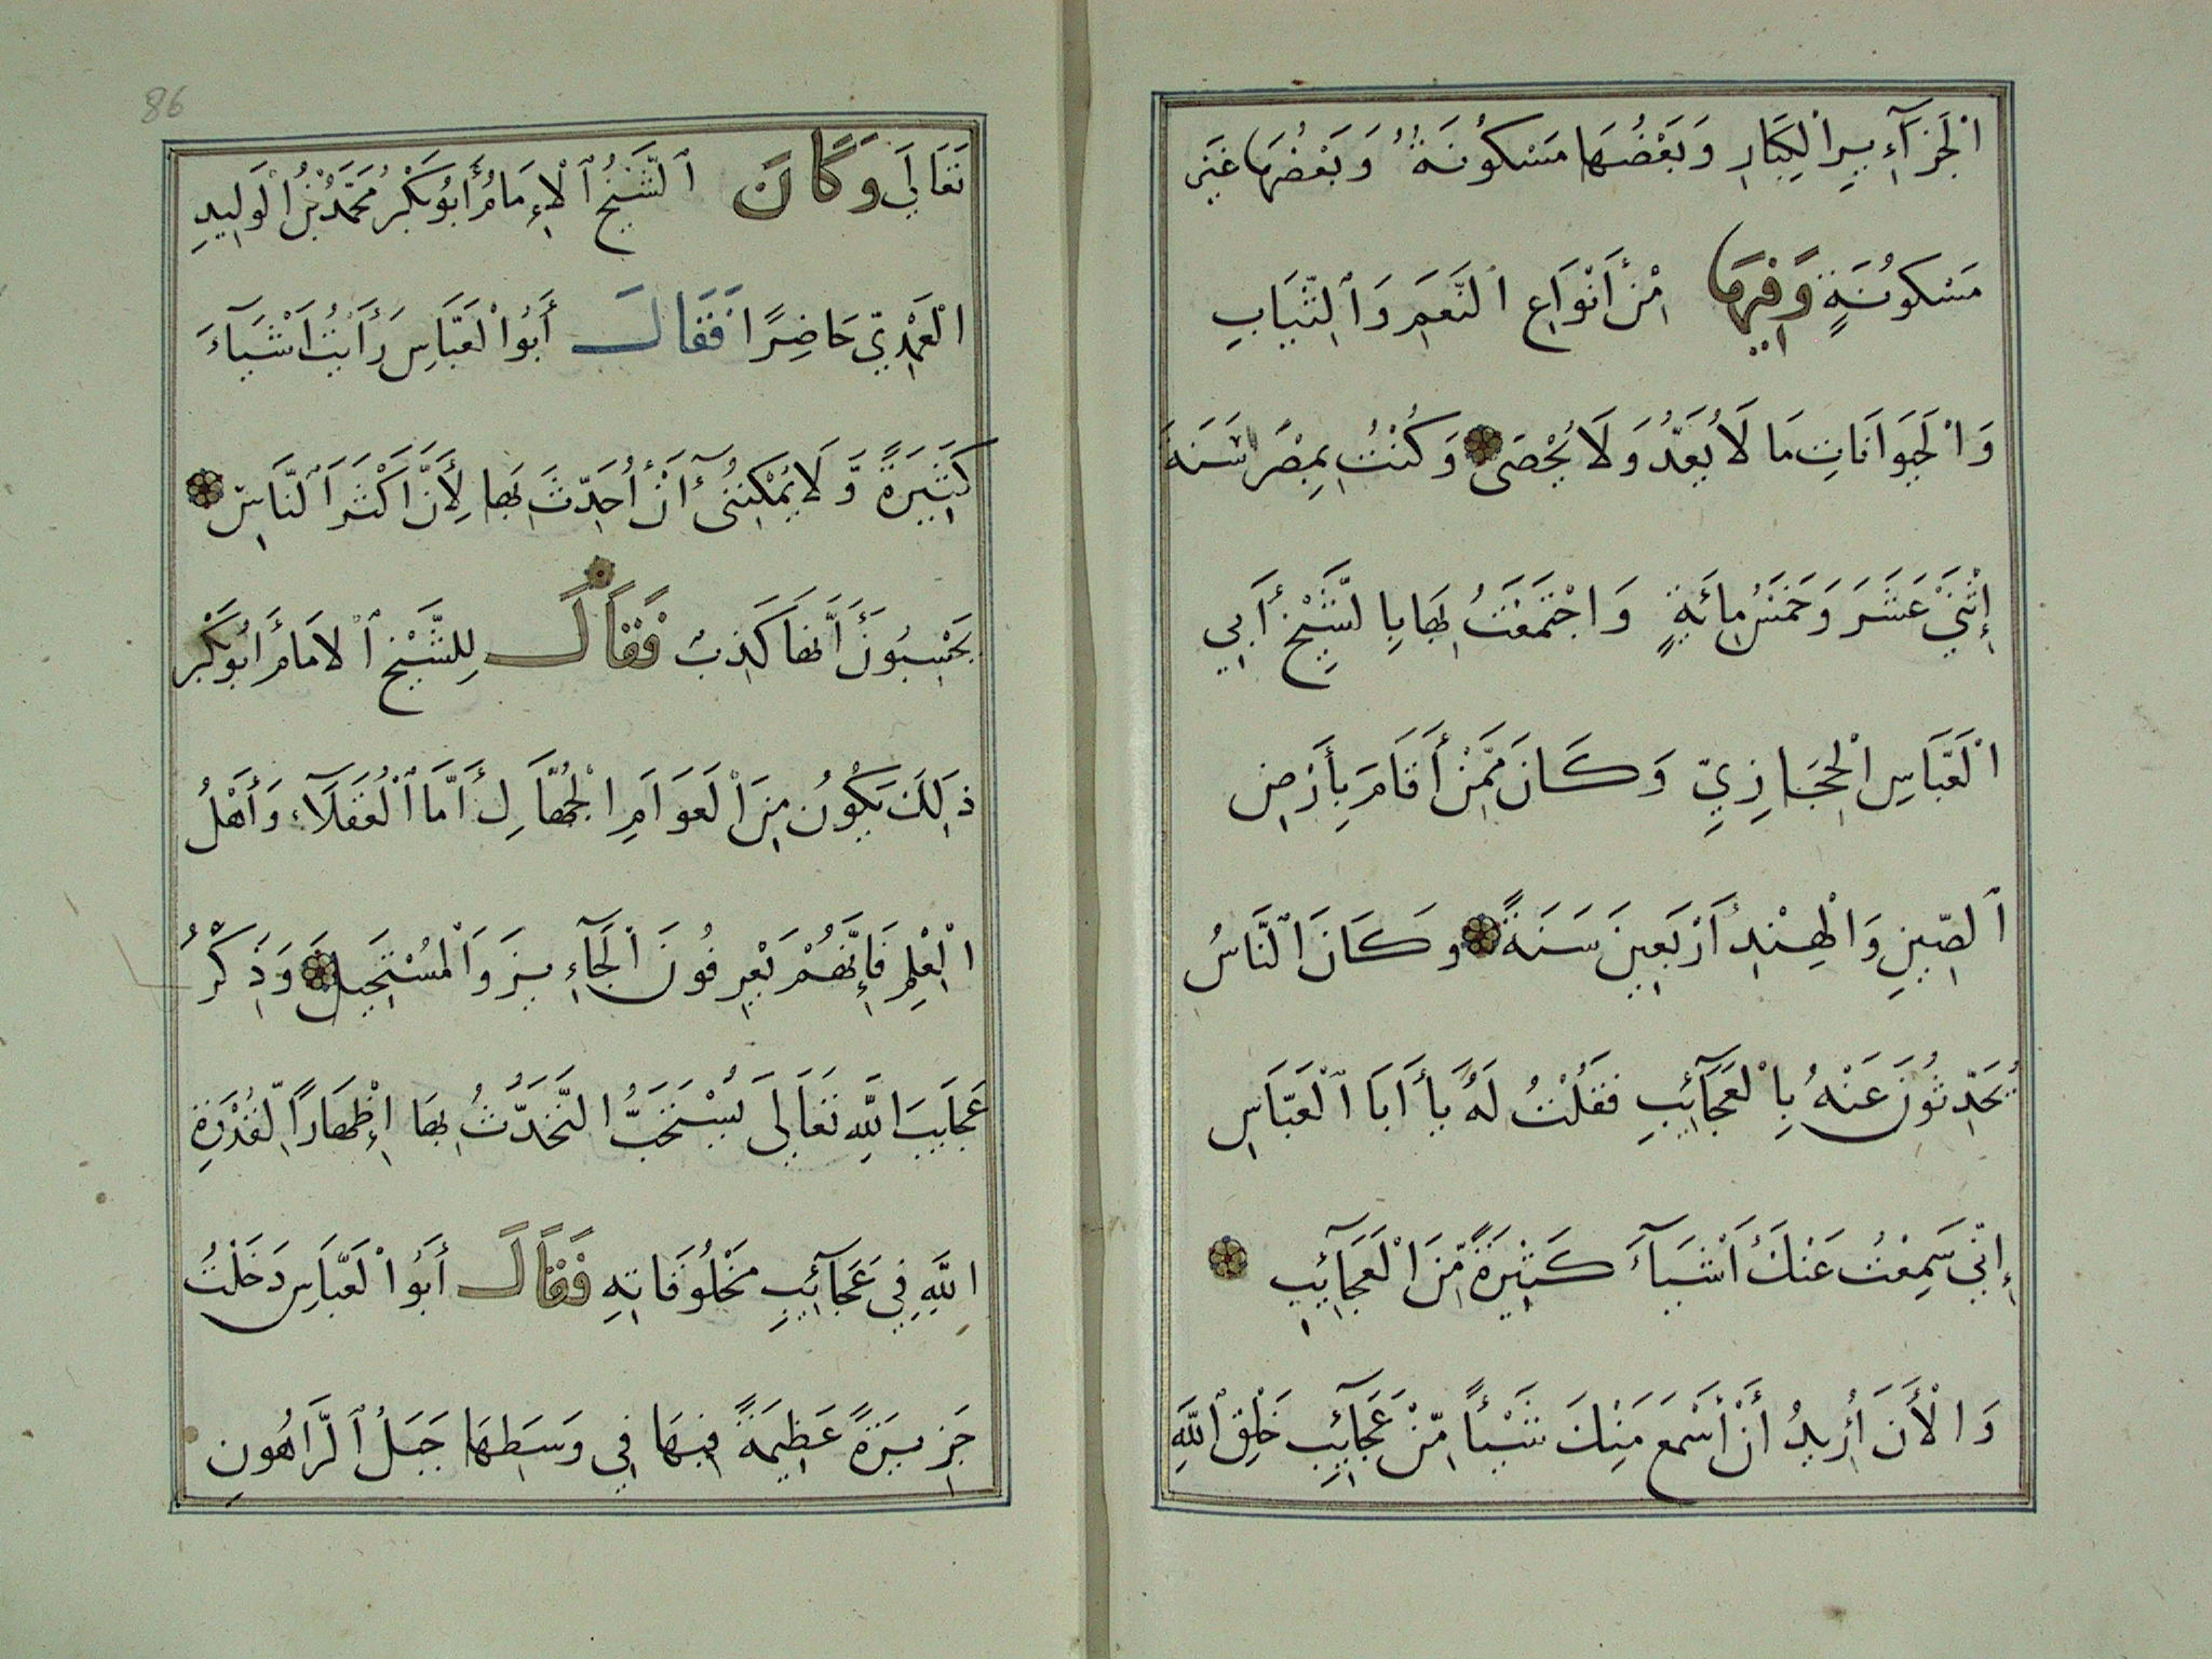 الْجَزَآءِيرِ الْكِبَارِ وَبَعْضُهَا مَسْكُونَةٌ وَبَعْضُهَا غَيْرَ
مَسْكُونَةٍ وَفِيهَا مِنْ أَنْوَاعِ النَّعَمِ وَالثِّيَابِ
وَالْحَيَوَانَاتِ مَا لَا يُعَدُّ وَلَا يُحْصَى وَكُنْتُ بِمِصْرَ سَنَةَ
إِثْنَيْ عَشَرَ وَخَمْسَ مِائَةٍ وَاجْتَمَعْتُ بِهَا بِالشَّيْخِ أَبِي
الْعَبَّاسِ الْحِجَازِيِّ وَكَانَ مِمَّنْ أَقَامَ بِأَرْضِ
الصِّينِ وَالْهِنْدِ أَرْبَعِينَ سَنَةً وكَانَ النَّاسُ
يُحَدِّثُونَ عَنْهُ بِالْعَجَآئِبِ فَقُلْتُ لَهُ يَا أَبَا الْعَبَّاسِ
إِنِّي سَمِعْتُ عَنْكَ أَشْيَآءَ كَثِيْرَةً مِّنَ الْعَجَآئِبِ
وَالْأَنَ أُرِيدُ أَنْ أَسْمَعَ مِنْكَ شَيْأً مِّنْ عَجَآئِبِ خَلْقِ اللَّهِ
86
تَعَالَي وَكَانَ الشَّيْخُ الْإِمَامُ أَبُو بَكْرُ مُحَمَّدُ بْنُ الْوَلِيدِ
الْعَهْدِيّ حَاضِرًا فَقَالَ أَبُوا الْعَبَّاسِ رَأَيْتُ أَشْيَآءَ
كَثِيَرَةً وَّلَا يُمْكِنُنِيٓ أَنْ أُحَدِّثَ بِهَا لِأَنَّ أَكْثَرَ النَّاسِ
يَحْسِبُونَ أَنَّهَا كَذِبٌ فَقَالَ لِلشَّيْخِ الامَامُ أَبُو بَكْرِ
ذَلِكَ يَكُونُ مِنَ الْعَوَامِ الْجُهَّالِ أَمَّا الْعُقَلَآءِ وَأَهْلُ
الْعِلْمِ فَإِنَّهُمْ يَعْرِفُونَ الْجَآءِيزَ وَالْمُسْتَحِيلَ وَذِكْرُ
عَجَايِبَ اللَّهِ تَعَالِى يُسْتَحَبُّ التَّحَدُّثُ بِهَا إِظْهَارًا لِّقُدْرَةِ
اللَّهِ فِي عَجَآئِبِ مَخْلُوقَاتِهِ فَقَالَ أَبُوا الْعَبَّاسِ دَخَلْتُ
جَزِيرَةً عَظِيمَةً فِيهَا فِي وَسَطِهَا جَبَلُ الرَّاهُونِ